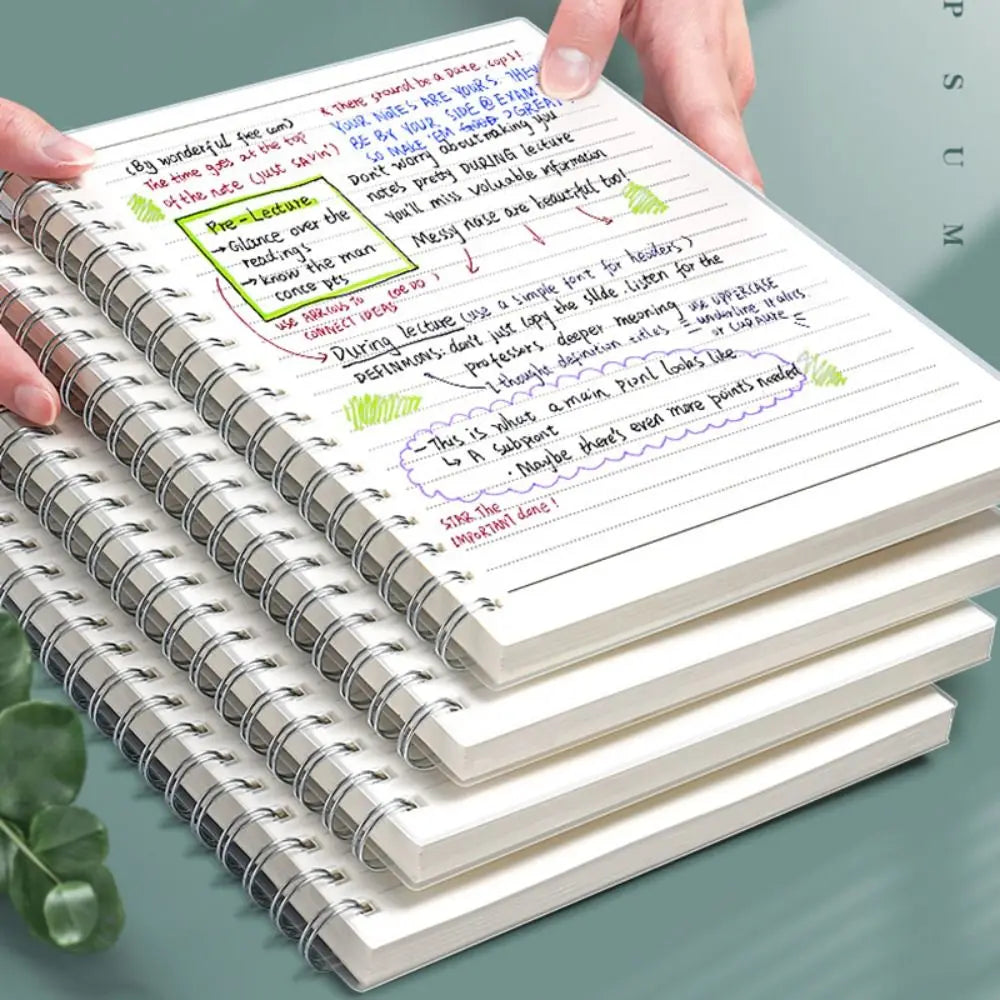 * There shourd be a Date, oops!
(By wonderful free com)
The time goes at the top
of the note (just savin')
YOUR NOTES ARE YOURS. THEY
BE BY YOUR SIDE @ EXAM
SO MAKE EM GREAT!
Don't worry about making you
notes pretty DURING lecture
You'll miss valuable information
Messy nose are beautiful too!
Pre-Lecture
→ Glance over the
readings
→ know the man
conce pts
use ARROWS To
CONNECT IDEAS
During lecture (use a simple font for headers)
DEFINMONS: don't just copy the slide. Listen for the
professors deeper meaning
use UPPERCASE
underline Italics
or CURAURE
I thought definition titles
- This is what a main Pionl looks like
↳ A subpont
· Maybe there's even more points needed
STAR The
IMPORTANT done!
P S U M